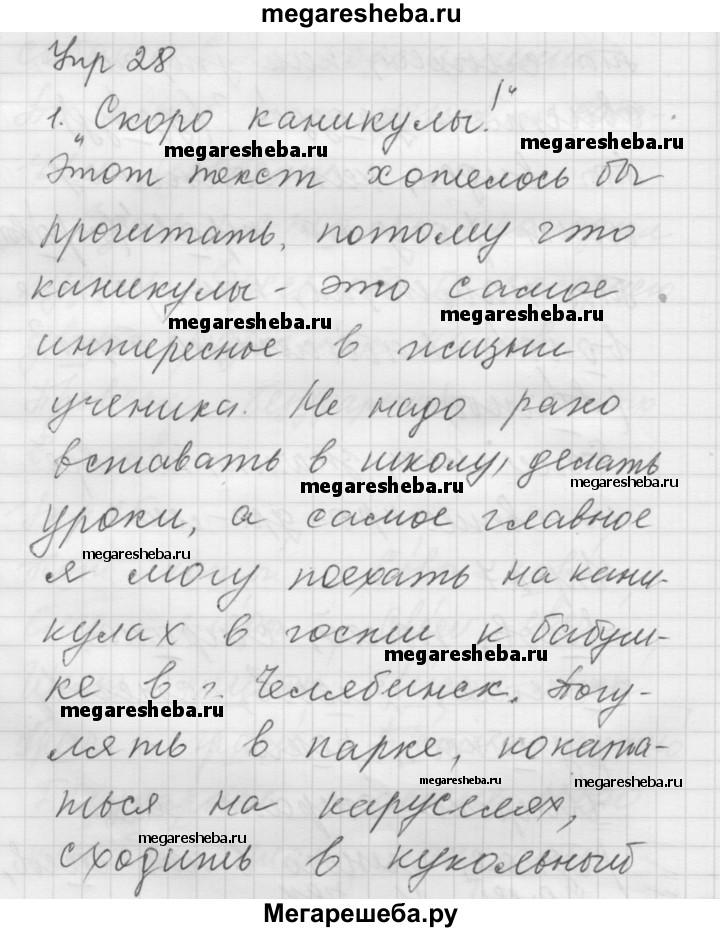 megaresheba.ru
Упр 28
1. "Скоро каникулы!"
megaresheba.ru
megaresheba.ru
Этот текст хотелось бы
прочитать, потому что
каникулы - это самое
megaresheba.ru
megaresheba.ru
интересное в жизни
ученика. Не надо рано
вставать в школу, делать
megaresheba.ru
megaresheba.ru
уроки, а самое главное
megaresheba.ru
я могу поехать на кани-
кулах в гости к бабуш-
megaresheba.ru
ке в г. Челябинск. Погу-
megaresheba.ru
лять в парке, поката-
megaresheba.ru
megaresheba.ru
ться на каруселях,
megaresheba.ru
сходить в кукольный
Мегарешеба.ру